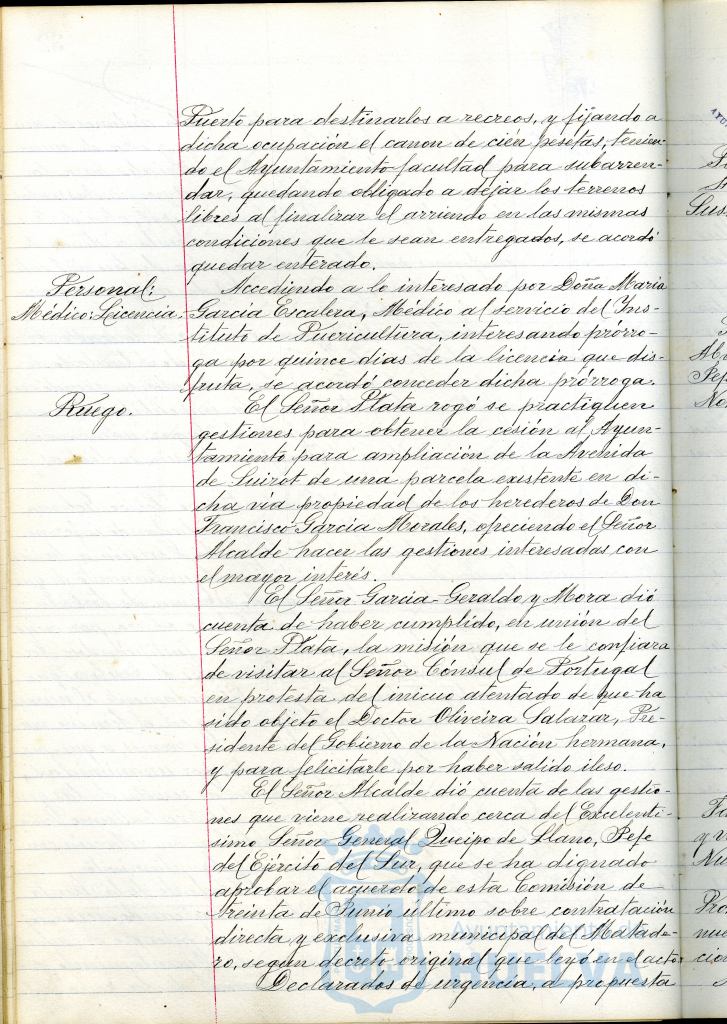 Puerto para destinarlos a recreos, y fijando a
dicha ocupación el canon de cién pesetas, tenien-
do el Ayuntamiento facultad para subarren-
dar, quedando obligado a dejar los terrenos
libres al finalizar el arriendo en las mismas
condiciones que le sean entregados, se acordó
quedar enterado.
Personal:
Médico: Licencia.
Accediendo a lo interesado por Doña Maria
Garcia Escalera, Médico al servicio del Ins-
tituto de Puericultura, interesando prórro-
ga por quince dias de la licencia que dis-
fruta, se acordó conceder dicha prórroga.
Ruego.
El Señor Plata rogó se practiquen
gestiones para obtener la cesión al Ayun-
tamiento para ampliación de la Avenida
de Guizot de una parcela existente en di-
cha via propiedad de los herederos de Don
Francisco Garcia Morales, ofreciendo el Señor
Alcalde hacer las gestiones interesadas con
el mayor interés.
El Señor Garcia-Geraldo y Mora dió
cuenta de haber cumplido, en unión del
Señor Plata, la misión que se le confiara
de visitar al Señor Cónsul de Portugal
en protesta del inicuo atentado de que ha
sido objeto el Doctor Oliveira Salazar, Pre-
sidente del Gobierno de la Nación hermana,
y para felicitarle por haber salido ileso.
El Señor Alcalde dió cuenta de las gestio-
nes que viene realizando cerca del Excelentí-
simo Señor General Queipo de Llano, Jefe
del Ejército del Sur, que se ha dignado
aprobar el acuerdo de esta Comisión de
treinta de Junio último sobre contratación
directa y exclusiva municipal de Matade-
ro, segun decreto original que leyó en el acto.
Declarados de urgencia, a propuesta
Ayuntamiento de
HUELVA